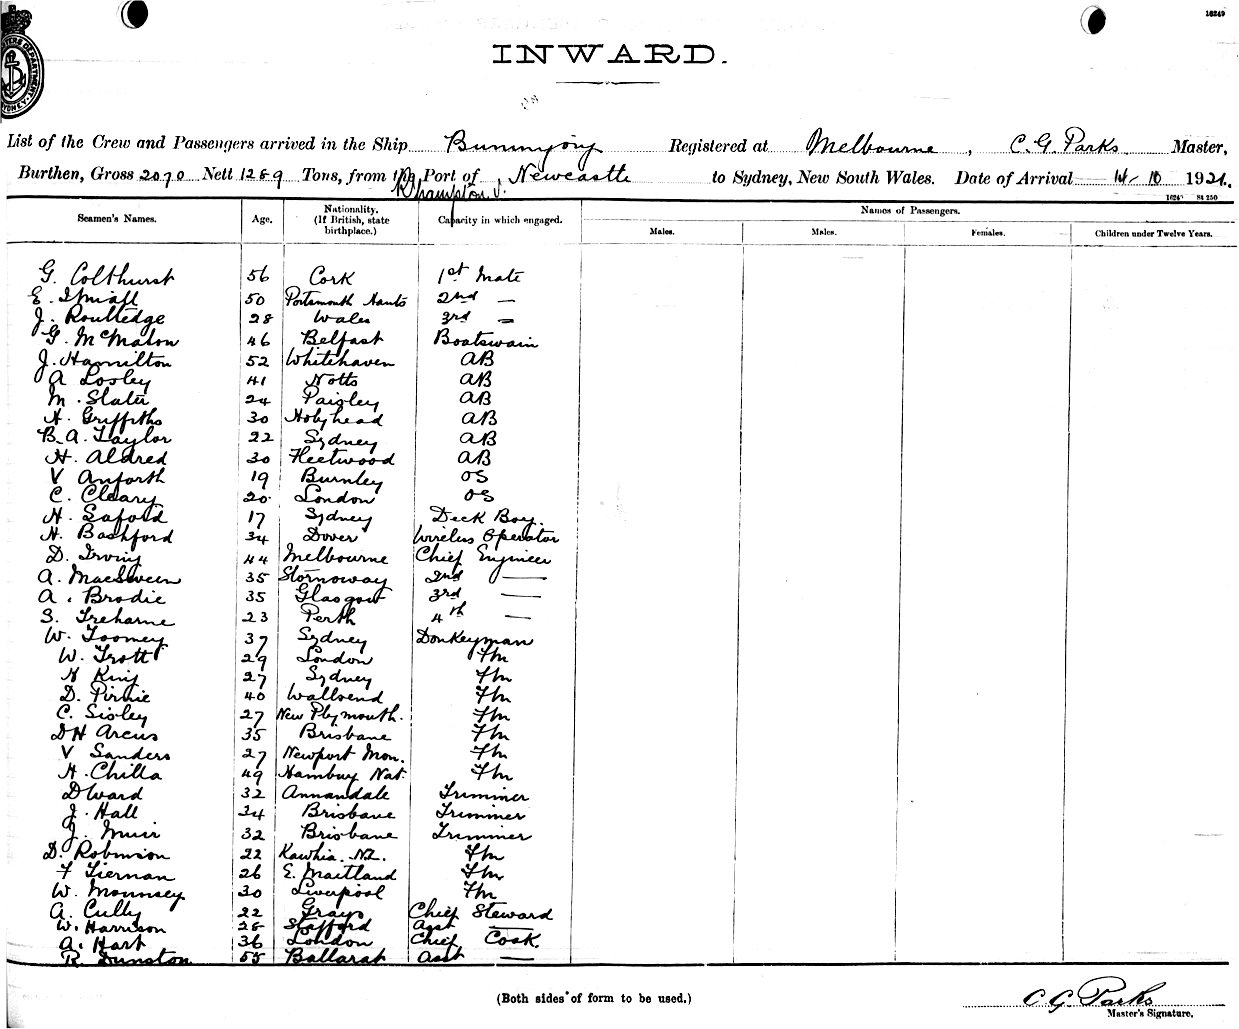 16249
INWARD.
List of the Crew and Passengers arrived in the Ship Bunninyong Registered at Melbourne, C. G. Parks Master,
Burthen, Gross 2070 Nett 1289 Tons, from the Port of Newcastle to Sydney, New South Wales. Date of Arrival 14/10 1921.
Seamen's Names. Age. Nationality. (If British, state birthplace.) Capacity in which engaged. Names of Passengers.
Males. Males. Females. Children under Twelve Years.
G. Colthurst 56 Cork 1st Mate
E. 50 Portsmouth Hants 2nd —
J. Routledge 28 Wales 3rd —
G. McMahon 46 Belfast Boatswain
J. Hamilton 52 Whitehaven AB
A Losley 41 Notts AB
M. Slater 24 Paisley AB
H. Griffiths 30 Holyhead AB
B. A. Taylor 22 Sydney AB
H. Aldred 30 Fleetwood AB
V Anforth 19 Burnley OS
C. Cleary 20 London OS
H. Saford 17 Sydney Deck Boy.
H. Bashford 34 Dover Wireless Operator
D. Irving 44 Melbourne Chief Engineer
A. MacSween 35 Stornoway 2nd —
A. Brodie 35 Glasgow 3rd —
S. Treharne 23 Perth 4th —
W. Toomey 37 Sydney Donkeyman
W. Trott 29 London Fm
H King 27 Sydney Fm
D. Pirrie 40 Wallsend Fm
C. Sisley 27 New Plymouth. Fm
D H Arcus 35 Brisbane Fm
V Sanders 27 Newport Mon. Fm
H. Chilla 49 Hamburg Nat. Fm
D Ward 32 Annandale Trimmer
J. Hall 24 Brisbane Trimmer
J. Muir 32 Brisbane Trimmer
D. Robinson 22 Kawhia. NZ. Fm
F Tiernan 26 E. Maitland Fm
W. Mounsey 30 Liverpool Fm
A. Cully 22 Grays Chief Steward
W. Harrison 28 Stafford Asst —
A. Hart 36 London Chief Cook.
R Dunston 55 Ballarat Asst —
(Both sides of form to be used.)
C G Parks
Master's Signature.